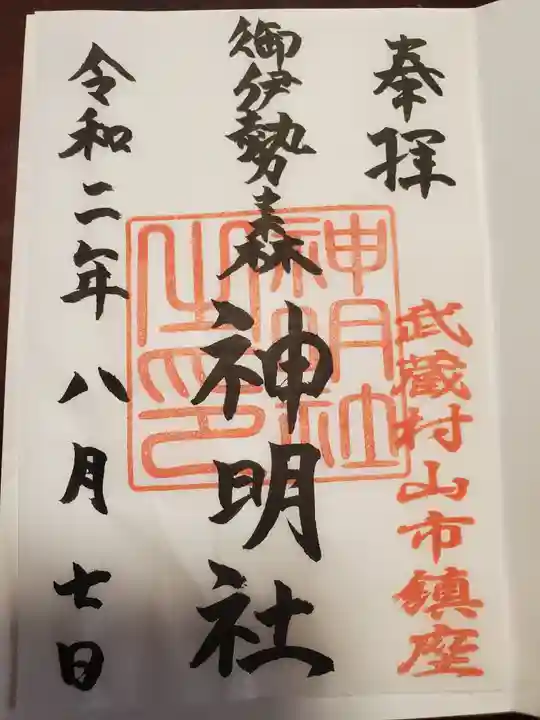 奉拝
武蔵村山市鎮座
御伊勢森
神明社
神明社之印
令和二年八月七日